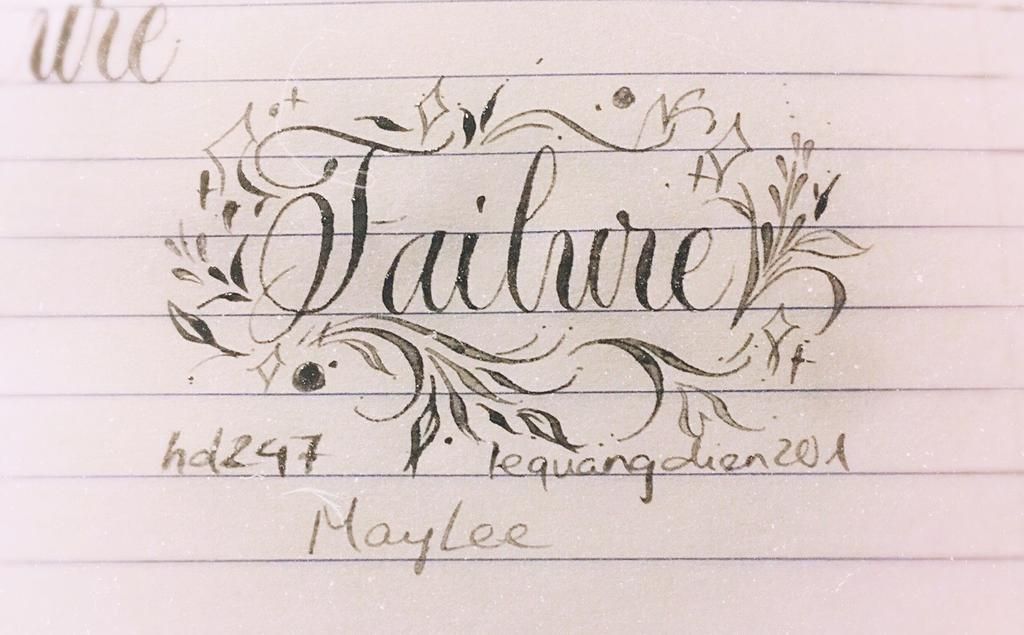 ure
Failure
hd247 lequangdien201
MayLee